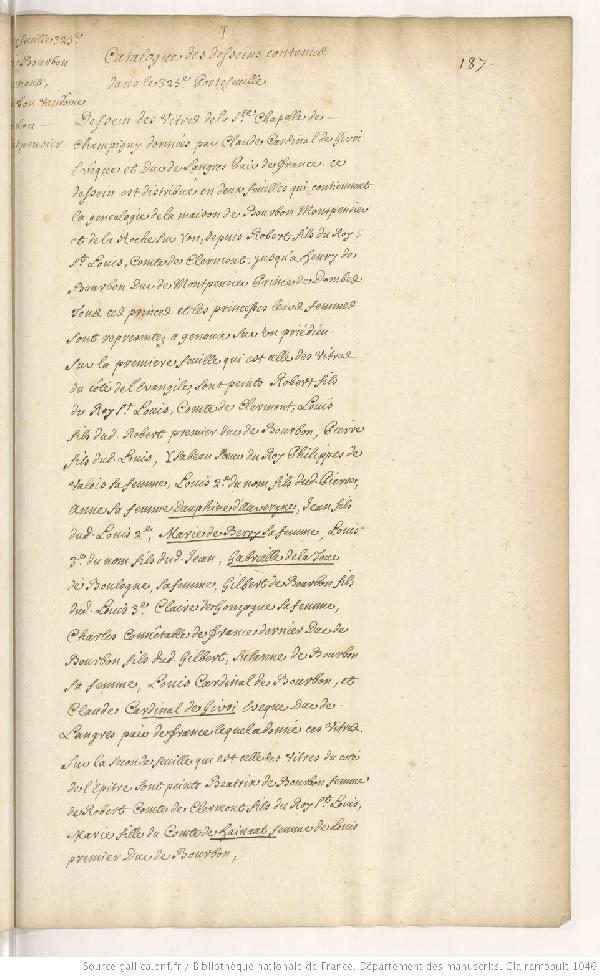 I
187.
feuille 323e.
Bourbon
mont,
bon vendôme
bon
tpensier
Catalogue des desseins contenus
dans le 323e. Portefeuille
Dessein des Vitres de la Ste. Chapelle de
Champigny données par Claude Cardinal de Givri
Eveque et Duc de Langres Pair de france. ce
dessein est distribué en deux feuilles qui contiennent
la genealogie de la maison de Bourbon Montpensier
et de la Roche sur Yon, depuis Robert fils du Roy
St. Louis, Comte de Clermont, jusqu'a henry de
Bourbon Duc de Montpensier Prince de Dombes
Tous ces princes et les princesses leurs femmes
sont representez a genoux sur un priédieu.
Sur la premiere feuille qui est celle des Vitres
du côté de l'Evangile, sont peints Robert fils
du Roy St. Louis, Comte de Clermont, Louis
fils dud. Robert premier duc de Bourbon, Pierre
fils dud. Louis, Ysabeau sœur du Roy Philippes de
Valois sa femme, Louis 2e. du nom fils dud. Pierre,
Anne sa femme Dauphine d'Auvergne, Jean fils
dud. Louis 2e., Marie de Berry sa femme, Louis
3e. du nom fils dud. Jean, Gabrielle de la Tour
de Boulogne, sa femme, Gilbert de Bourbon fils
dud. Louis 3e. Claire de Gonzague sa femme,
Charles Connétable de france dernier Duc de
Bourbon fils dud. Gilbert, Suzanne de Bourbon
sa femme, Louis Cardinal de Bourbon, et
Claude Cardinal de Givri Eveque Duc de
Langres pair de france lequel a donné ces Vitres.
Sur la seconde feuille qui est celle des Vitres du coté
de l'Epitre sont peints Beatrix de Bourbon femme
de Robert Comte de Clermont fils du Roy St. Louis,
Marie fille du Comte de Hainaut femme de Louis
premier Duc de Bourbon,
Source gallica.bnf.fr / Bibliothèque nationale de France. Département des manuscrits. Clairambault 1046